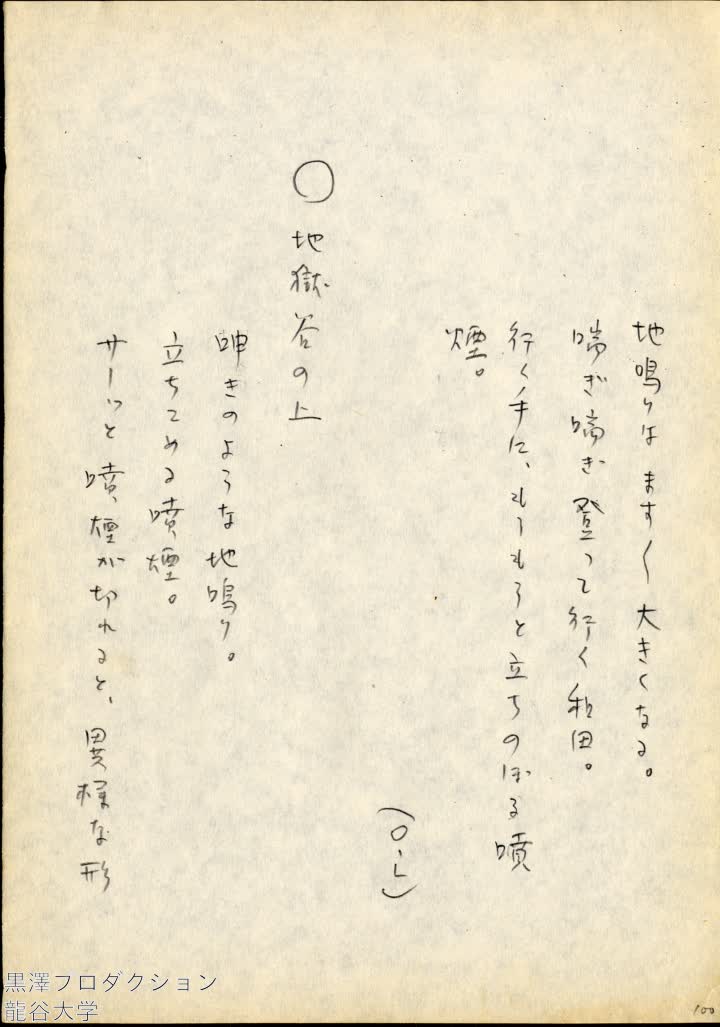 地鳴りはます〱大きくなる。
喘ぎ喘ぎ登って行く和田。
行く手に、もうもうと立ちのぼる噴
煙。
(O・L)
○ 地獄谷の上
呻きのような地鳴り。
立ちこめる噴煙。
サーッと噴煙が切れると、異様な形
黒澤プロダクション
龍谷大学
100